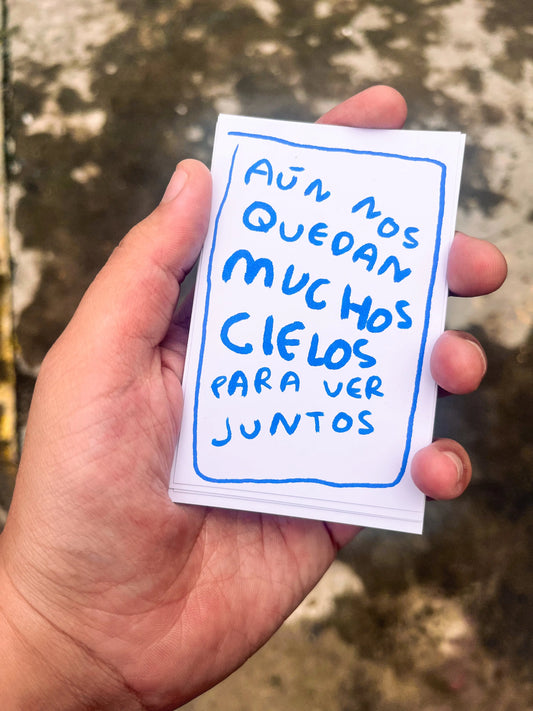 AÚN NOS
QUEDAN
MUCHOS
CIELOS
PARA VER
JUNTOS